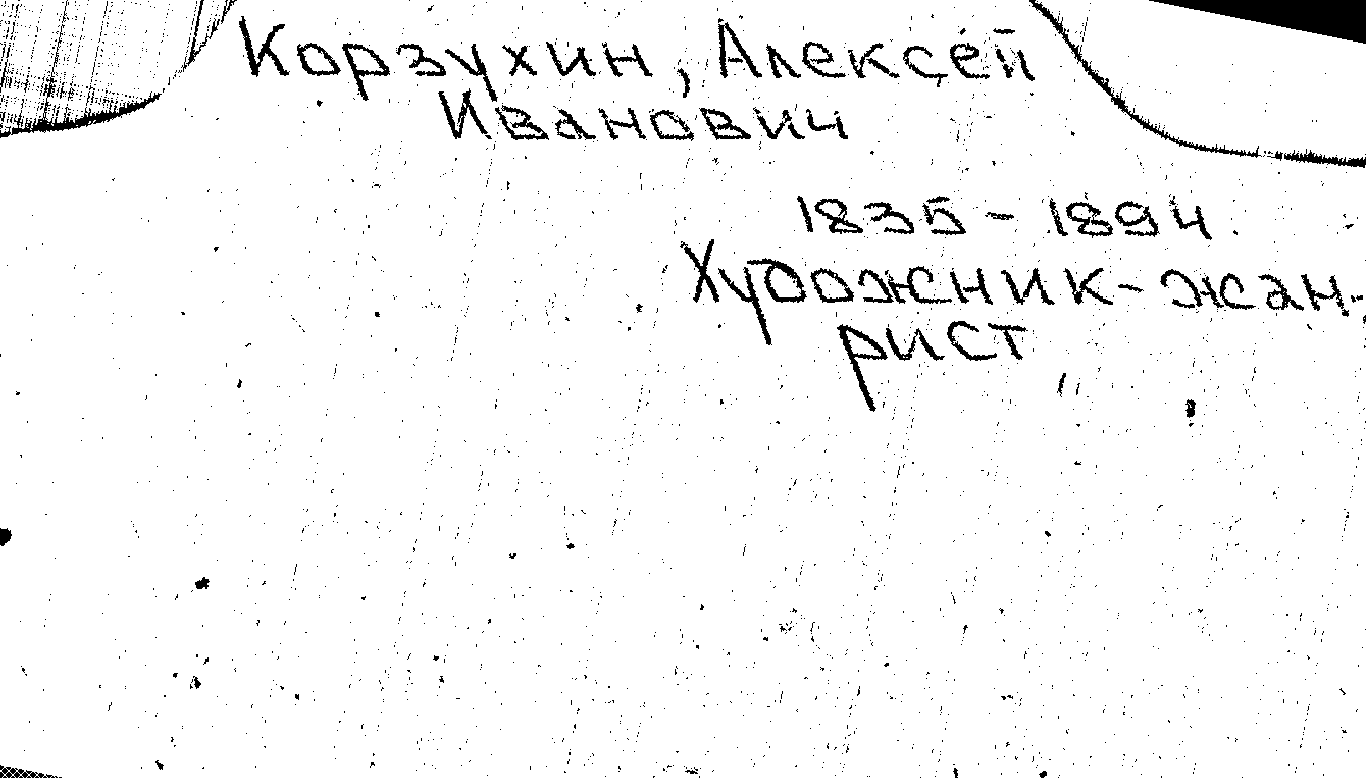 Корзухин, Алексей
Иванович
1835 - 1894.
Художник-жан-
рист